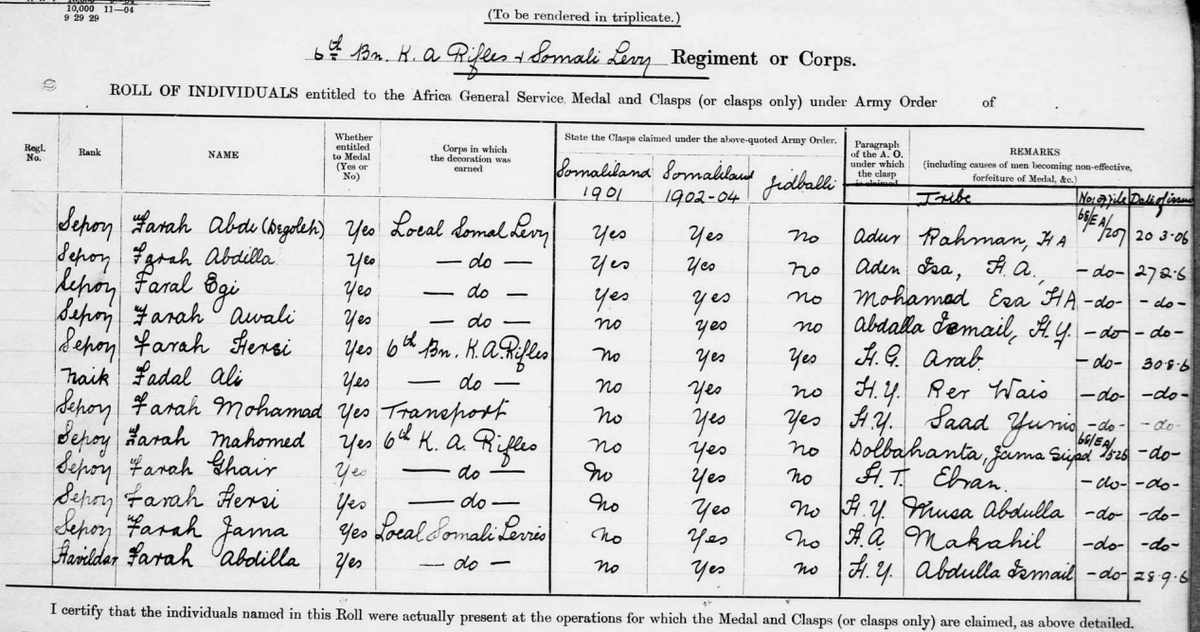 10,000 11—04
9 29 29
(To be rendered in triplicate.)
6th Bn. K. A Rifles & Somali Levy Regiment or Corps.
ROLL OF INDIVIDUALS entitled to the Africa General Service Medal and Clasps (or clasps only) under Army Order of
Regl. No. Rank NAME Whether entitled to Medal (Yes or No) Corps in which the decoration was earned State the Clasps claimed under the above-quoted Army Order. Paragraph of the A. O. under which the clasp is claimed REMARKS (including causes of men becoming non-effective, forfeiture of Medal, &c.)
Somaliland 1901 Somaliland 1902-04 Jidballi Tribe No: of file Date of issue
Sepoy Farah Abdi (Degoleh) Yes Local Somal Levy Yes Yes No Adur Rahman, H A 68/EA/207 20 3-06
Sepoy Farah Abdilla Yes — do — Yes Yes No Aden Isa, H. A. -do- 27 2-6
Sepoy Faral Egi Yes — do — Yes Yes No Mohamad Esa H A -do- -do-
Sepoy Farah Awali Yes — do — no Yes no Abdalla Ismail, H. Y. -do- -do-
Sepoy Farah Hersi Yes 6th Bn. K. A. Rifles No Yes Yes H. G. Arab -do- 30.8.6
Naik Fadal Ali Yes — do — No Yes no H. Y. Rer Wais -do- -do-
Sepoy Farah Mohamad Yes Transport No Yes Yes H. Y. Saad Yunis -do- -do-
Sepoy Farah Mahomed Yes 6th K. A. Rifles No Yes No Dolbahanta, Jama Siyad 68/EA/526 -do-
Sepoy Farah Ghair Yes — do — No Yes No H. T. Ebran -do- -do-
Sepoy Farah Hersi Yes — do — No Yes No H. Y. Musa Abdulla -do- -do-
Sepoy Farah Jama Yes Local Somali Levies No Yes No H. A. Makahil -do- -do-
Havildar Farah Abdilla Yes — do — no Yes no H. Y. Abdulla Ismail -do- 28.9.6
I certify that the individuals named in this Roll were actually present at the operations for which the Medal and Clasps (or clasps only) are claimed, as above detailed.